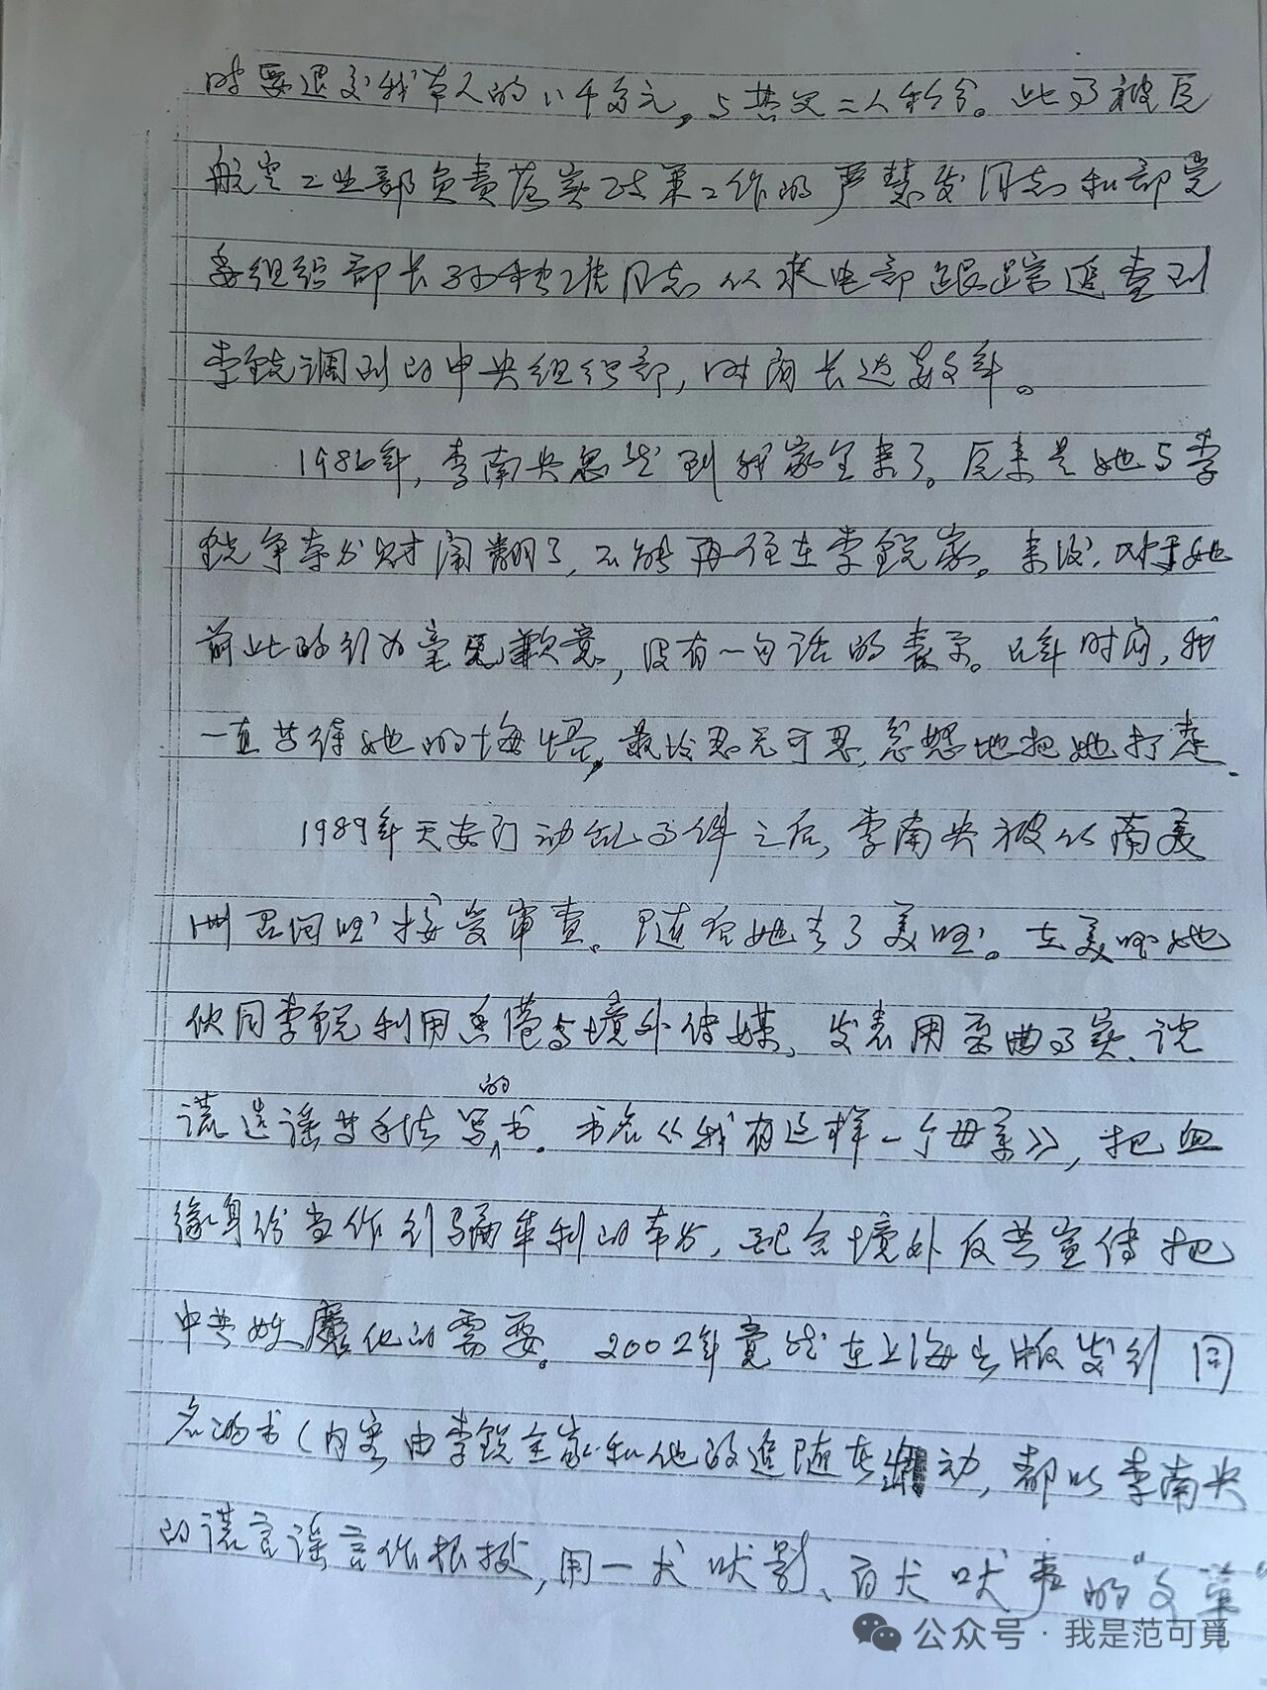 时要退交我本人的八千多元,与其父二人私分。此事被原
航空工业部负责落实政策工作的严慧发同志和部党
委组织部长孙桂准同志从水电部跟踪追查到
李锐调到的中央组织部,时间长达数年。
1986年,李南央忽然到我家里来了。原来是她与李
锐争夺分财闹翻了,不能再住在李锐家。来后,对于她
前此的行为毫无歉意,没有一句话的表示。几年时间,我
一直等待她的悔悟,最终忍无可忍,忿怒地把她打走。
1989年天安门动乱事件之后,李南央被从南美
洲召回国接受审查。随后她去了美国。在美国她
伙同李锐利用香港与境外传媒,发表用歪曲事实、说
谎造谣等手法写的书。书名《我有这样一个母亲》,把血
缘身份当作行骗牟利的本分,配合境外反共宣传把
中共妖魔化的需要。2002年竟然在上海出版发行同
名的书(内容由李锐全家和他的追随者 动,都以李南央
的谎言谣言作根据,用一犬吠影、百犬吠声的“文章”
公众号·我是范可覓